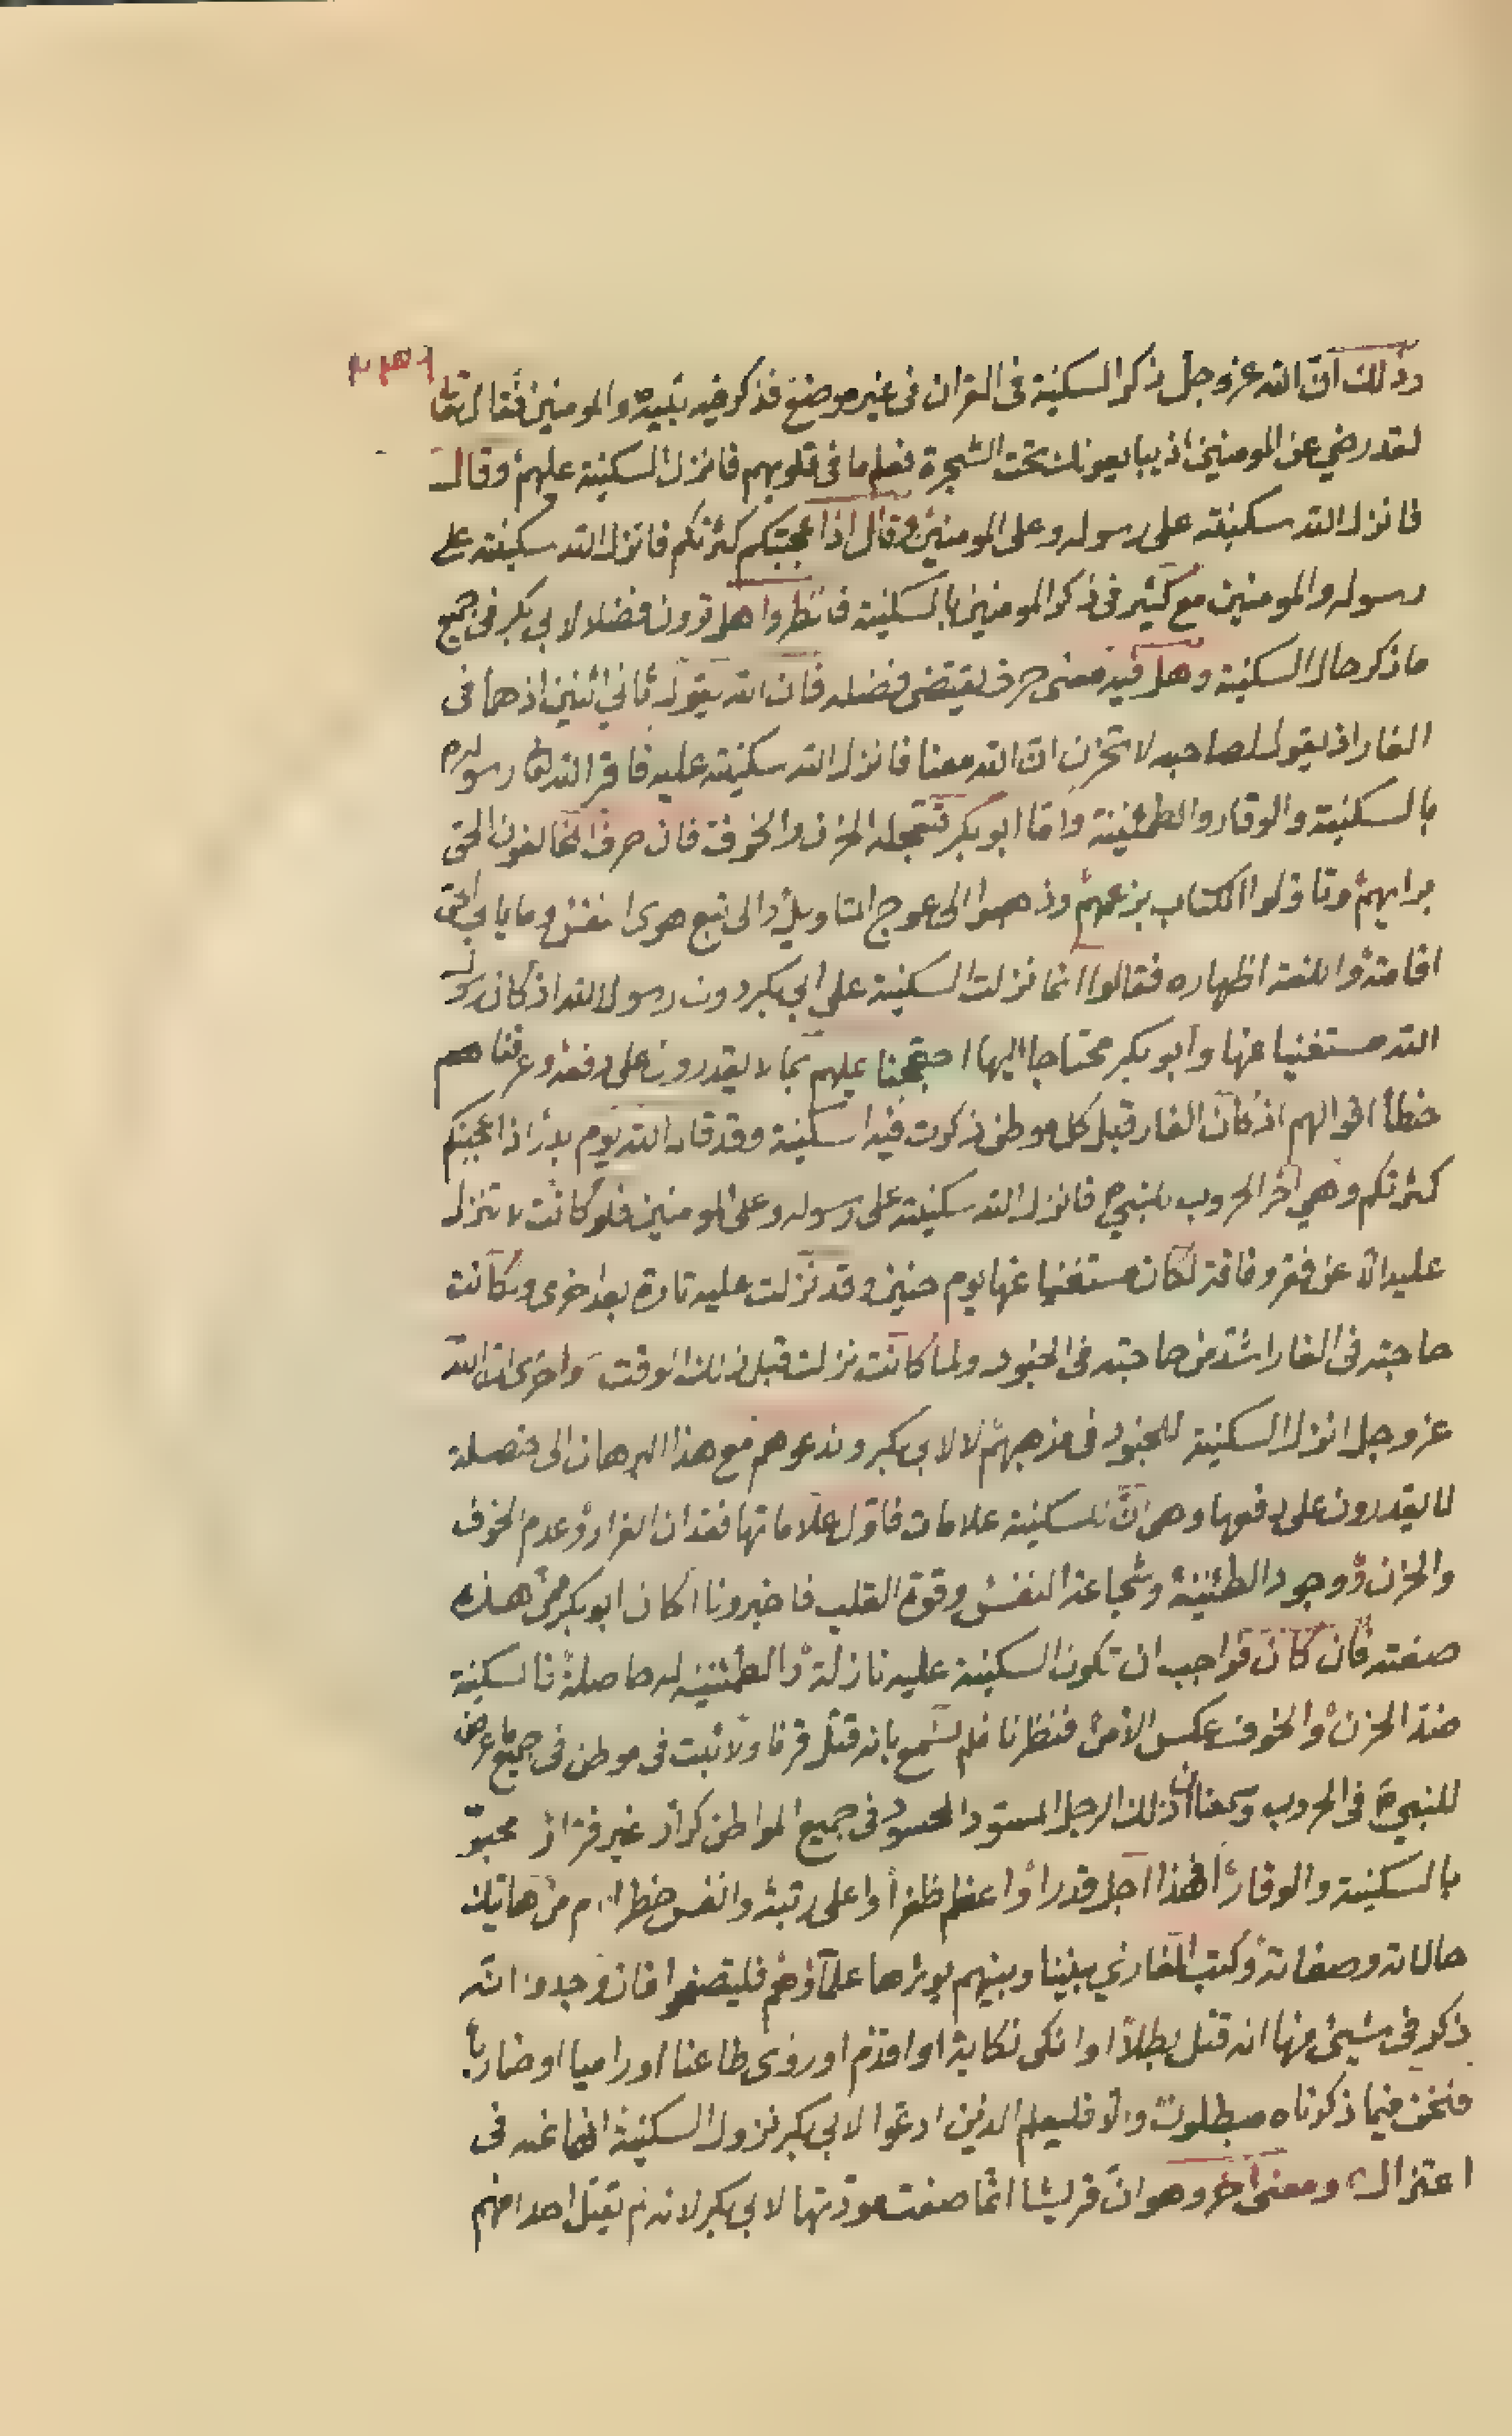 وذلك ان الله عز وجل ذكر السكينة فى القران فى غير موضع فذكر فيه نبيه والمومنين فقال تعا
لقد رضي عن المومنين اذ يبايعونك تحت الشجرة فعلم ما فى قلوبهم فانزل السكينة عليهم وقال
فانزل الله سكينته على رسوله وعلى المومنين وقال اذا عجبتكم كثرتكم فانزل الله سكينته على
رسوله والمومنين مع كثير فى ذكر المومنين بالسكينة فانظروا هل ترون فضلا لابي بكر فى جميع
ما ذكر حال السكينة وهل فيه معنى حرف يقتضى فضله فان الله يقول ثاني اثنين اذ هما فى
الغار اذ يقول لصاحبه لا تحزن ان الله معنا فانزل الله سكينته عليه فاقر الله رسوله
بالسكينة والوقار والطمئنينة واما ابو بكر الحزن والخوف فان حرف المخالفون الحق
برايهم وتاولوا الكتاب بزعمهم وذهبوا الى عوج التاويل والى تبع هوى انفس وما يابى الحق
اقامته واللغة اظهاره فقالوا انما نزلت السكينة على ابي بكر دون رسول الله اذ كان رسول
الله مستغنيا عنها وابو بكر محتاجا اليها احتججنا عليهم بما لا يقدرون على دفعه وعرفناهم
خطأ اقوالهم اذ كان الغار قبل كل موطن ذكرت فيه اسكينة وقد قال الله يوم بدر اذا عجبتكم
كثرتكم وهي اخر الحروب للنبي فانزل الله سكينته على رسوله وعلى المومنين فلو كانت لا تنزل
عليه الا عن فقر وفاقة لكان مستغنيا عنها يوم حنين وقد نزلت عليه تارة بعد اخرى ولكانت
حاجته فى الغار اشد من حاجته فى الجنود ولما كانت نزلت قبل ذلك الوقت واخرى ان الله
عز وجل انزل السكينة للجنود فى مذهبهم لا لابي بكر وندعوهم مع هذا البرهان الى فصلة
لا يقدرون على دفعها وهى ان للسكينة علامات فاول علاماتها فقدان الفرار وعدم الخوف
والحزن ووجود الطمئنينة وشجاعة النفس وقوة القلب فاخبرونا اكان ابو بكر ممن هذه
صفته فان كان فواجب ان تكون السكينة عليه نازلة والطمئنينه له حاصلة فالسكينة
ضد الحزن والخوف عكس الأمن فنظرنا فلم نسمع بانه قتل قرنا ولا ثبت فى موطن فى جميع ما عرض
للنبي فى الحروب وسمعنا ان ذلك الرجل المحسود فى جميع المواطن كرار غير فرار محبو
بالسكينة والوقار افهذا اجل قدرا واعظم ظفرا واعلى رتبة وانفس خطرا ام من هاتيك
حالاته وصفاته وكتب المغازي بيننا وبينهم يوثرها علماؤهم فليتصفحوا فان وجدوا الله
ذكر فى شيئ منها انه قتل بطلا او انكى نكاية او اقدم او روى طاعنا او راميا او ضاربا
فنحن فيما ذكرناه مبطلون والا فليعلم الذين ادعوا لابي بكر نزول السكينة انها عنه فى
اعتزال ومعنى اخر وهو ان قريشا انما صفت مودتها لابي بكر لانه لم يقتل احدا منهم